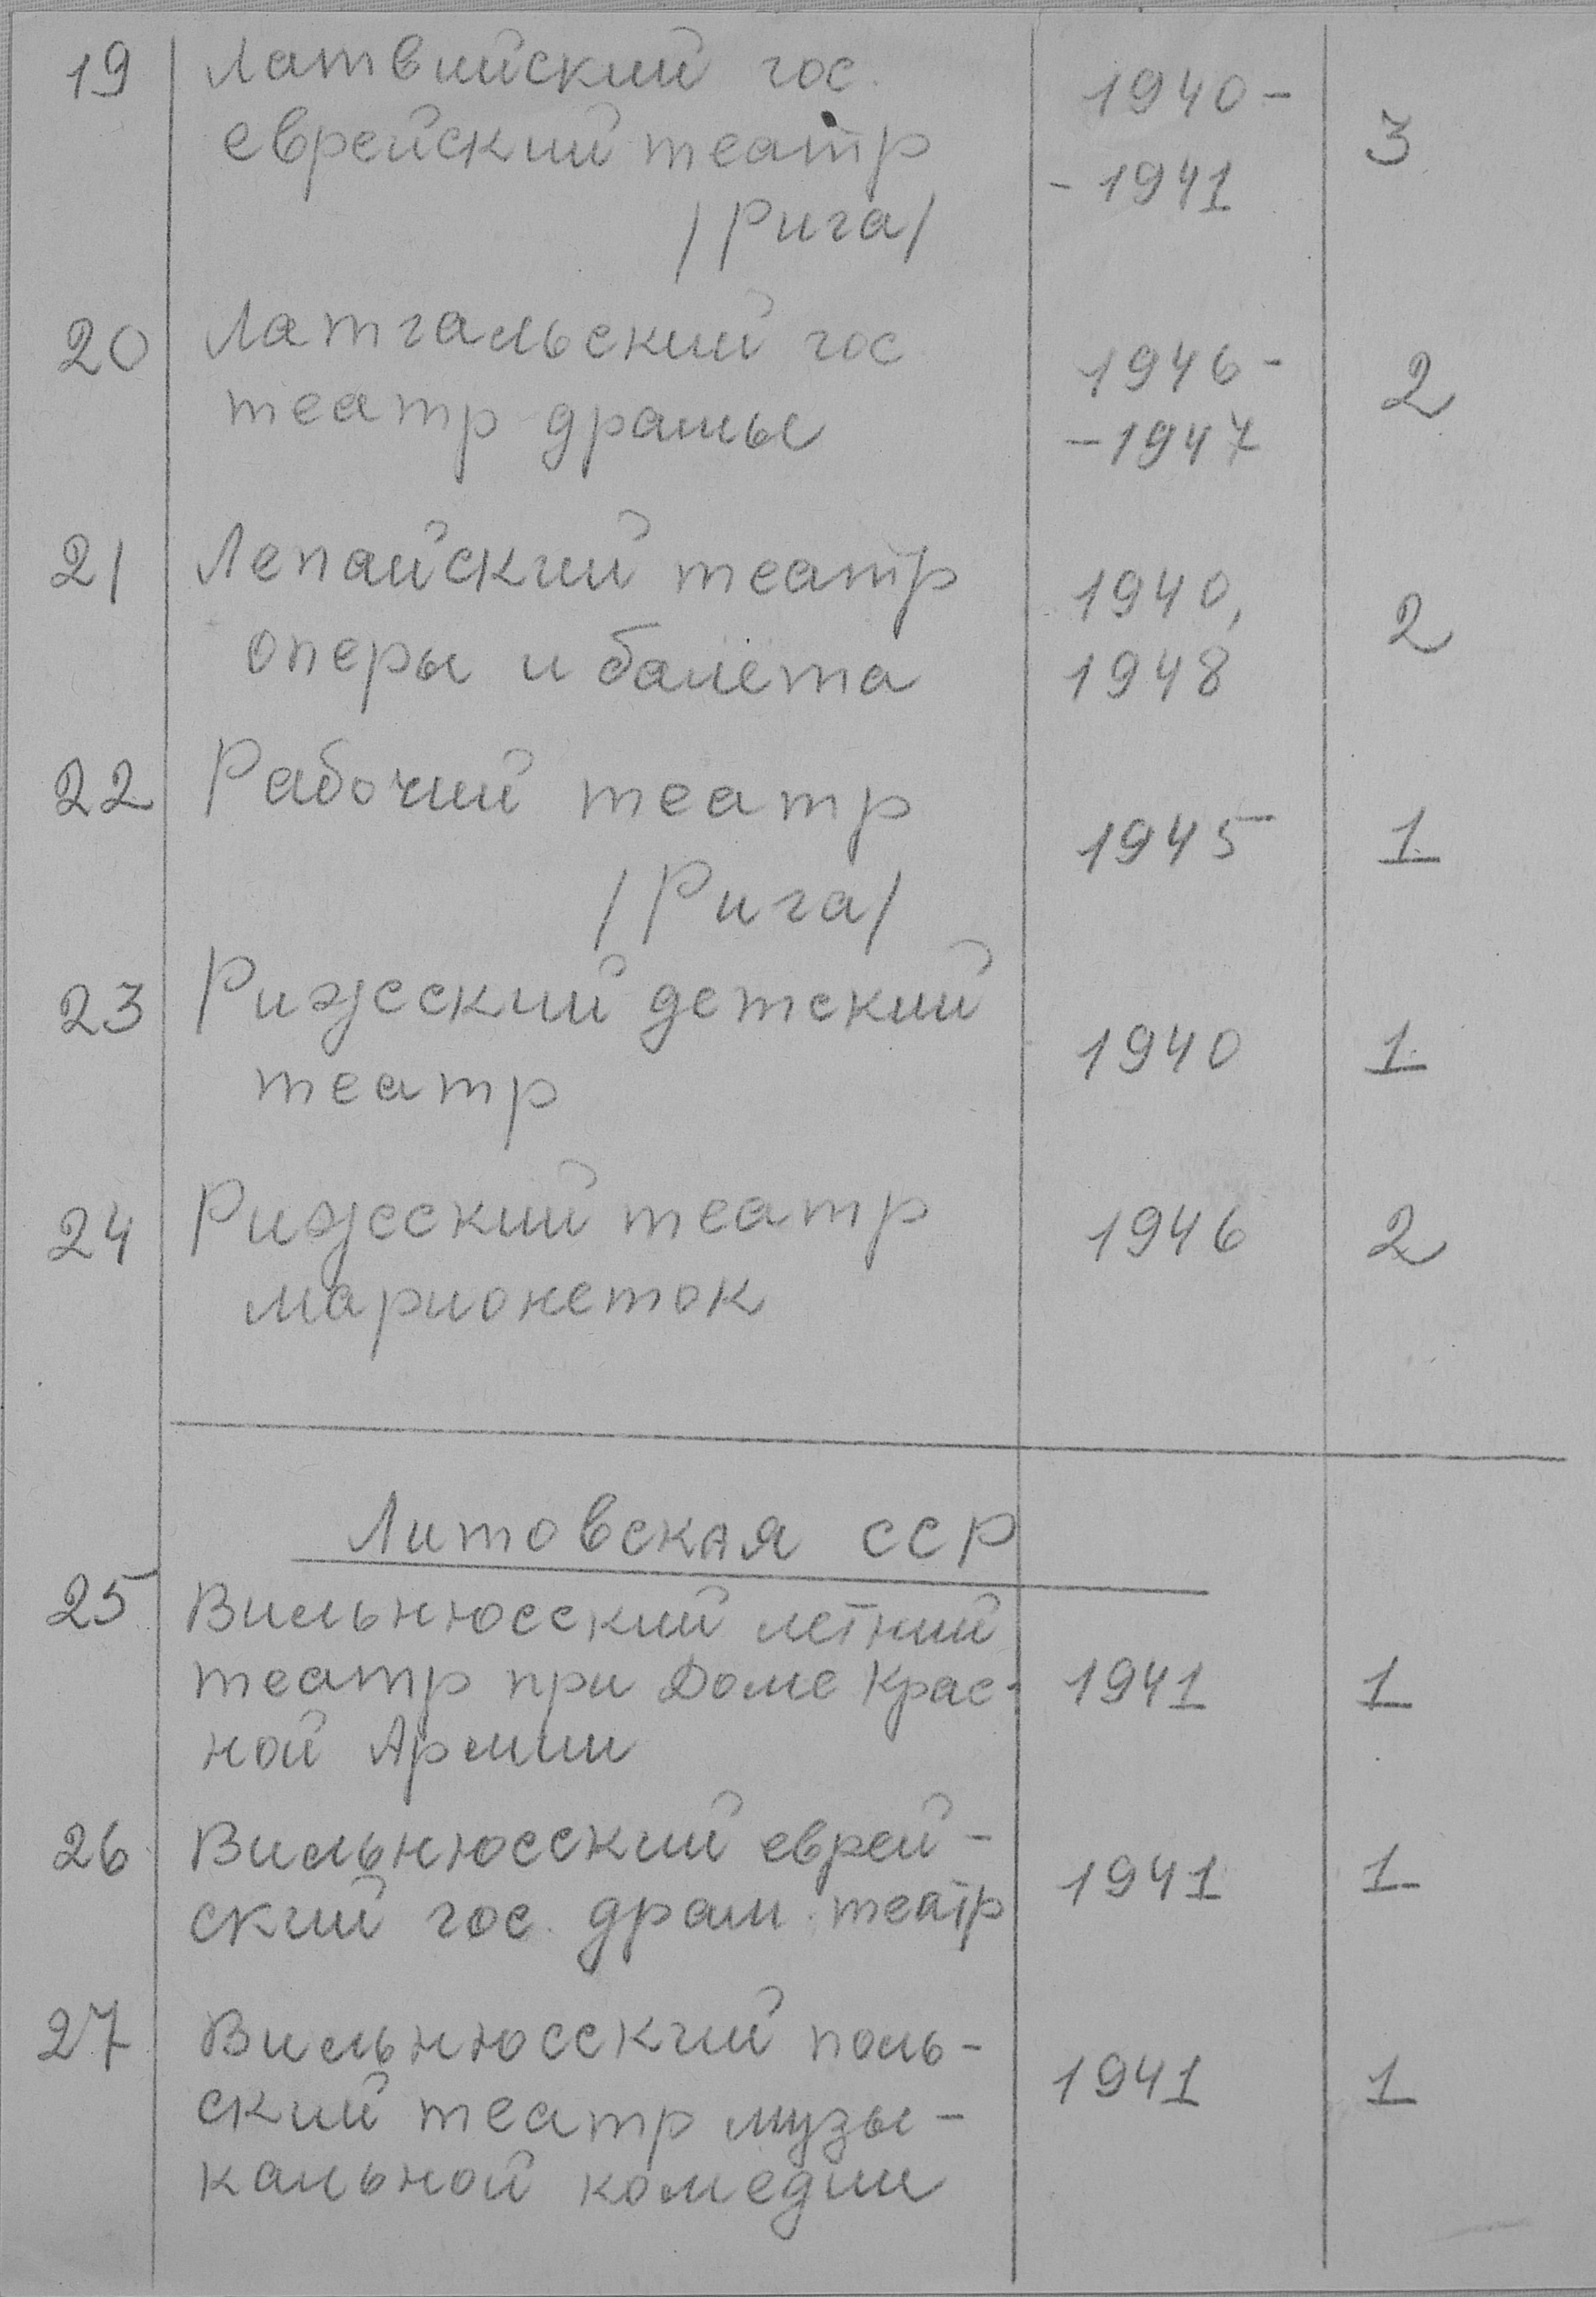 19 Латвийский гос. 1940-
еврейский театр - 1941 3
/Рига/
20 Латгальский гос 1946-
театр драмы - 1947 2
21 Лепайский театр 1940,
оперы и балета 1948 2
22 Рабочий театр 1945 1
/Рига/
23 Рижсский детский 1940 1
театр
24 Рижсский театр 1946 2
марионеток
Литовская ССР
25 Вильнюсский летний
театр при Доме Крас- 1941 1
ной Армии
26 Вильнюсский еврей- 1941 1
ский гос. драм. театр
27 Вильнюсский поль-
ский театр музы- 1941 1
кальной комедии